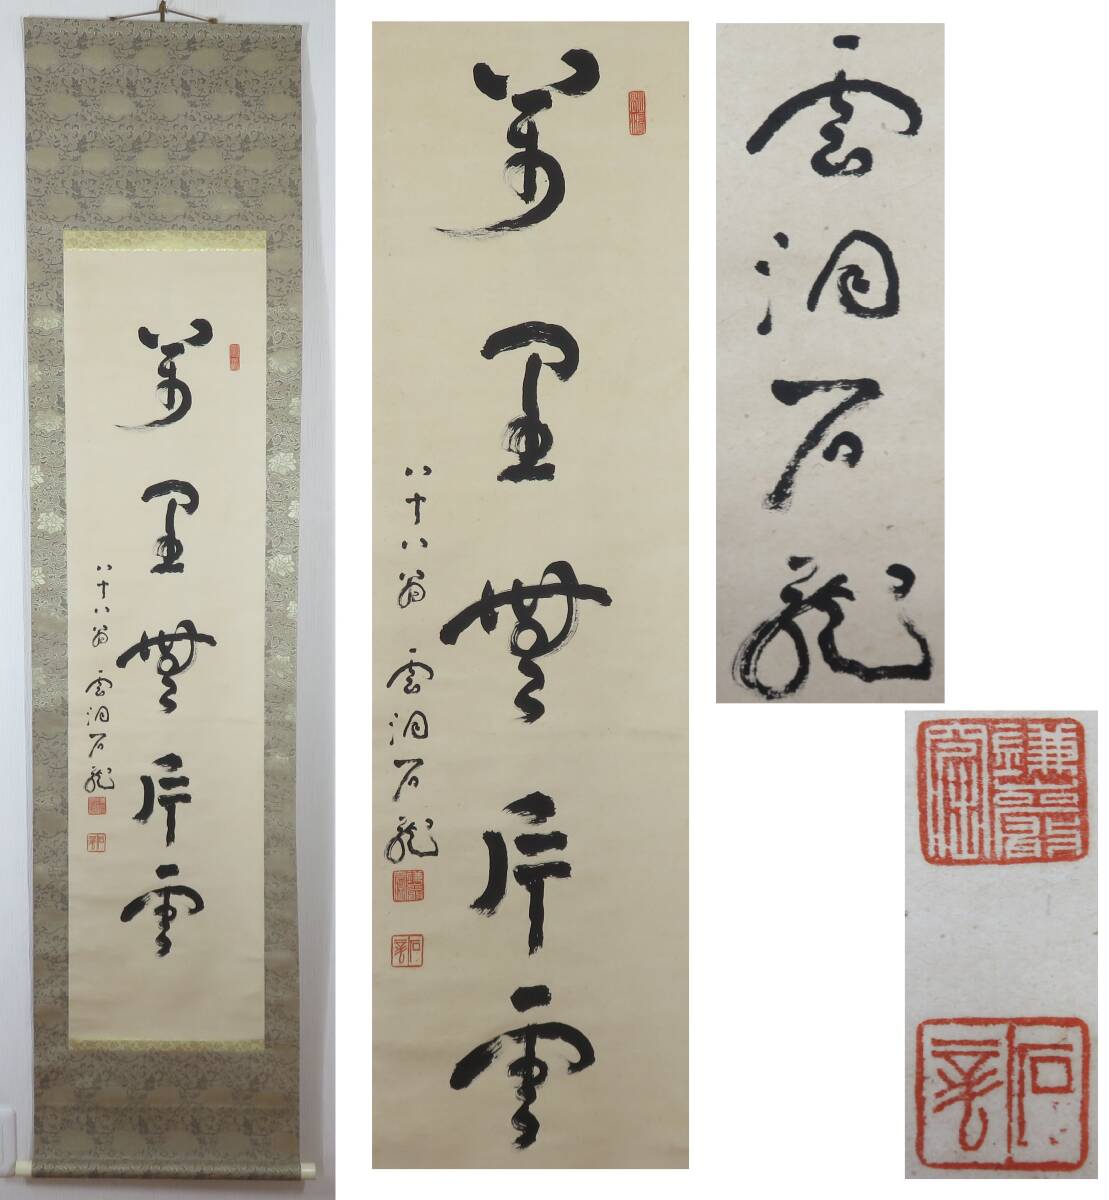 萬里無片雲
八十八翁 雲洞石龍
萬里無片雲
八十八翁 雲洞石龍
雲洞石龍